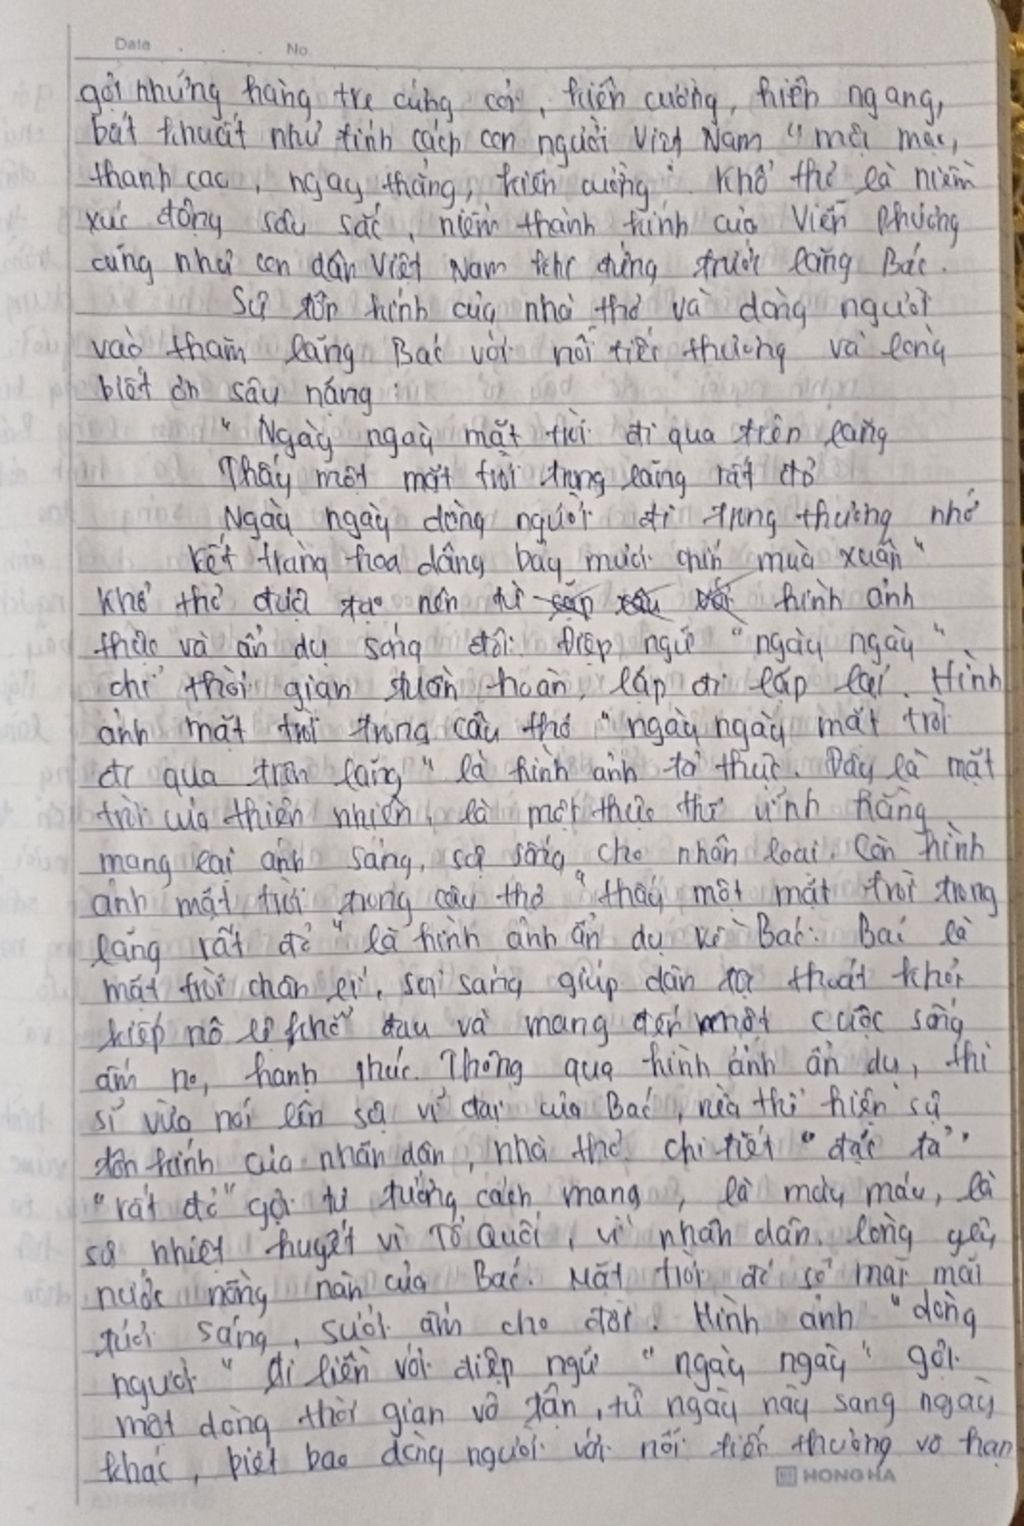 Date . . . No.
gợi những hàng tre cứng cỏi, kiên cường, hiên ngang,
bất khuất như tính cách con người Việt Nam "mộc mạc,
thanh cao, ngay thẳng, kiên cường". Khổ thơ là niềm
xúc động sâu sắc, niềm thành kính của Viễn Phương
cũng như con dân Việt Nam khi đứng trước lăng Bác.
Sự tôn kính của nhà thơ và dòng người
vào thăm lăng Bác với nỗi tiếc thương và lòng
biết ơn sâu nặng:
"Ngày ngày mặt trời đi qua trên lăng
Thấy một mặt trời trong lăng rất đỏ
Ngày ngày dòng người đi trong thương nhớ
Kết tràng hoa dâng bảy mươi chín mùa xuân"
Khổ thơ được tạo nên từ hình ảnh
thực và ẩn dụ sóng đôi. Điệp ngữ "ngày ngày"
chỉ thời gian tuần hoàn, lặp đi lặp lại. Hình
ảnh mặt trời trong câu thơ "ngày ngày mặt trời
đi qua trên lăng" là hình ảnh tả thực. Đây là mặt
trời của thiên nhiên, là một thực thể vĩnh hằng
mang lại ánh sáng, sự sống cho nhân loại. Còn hình
ảnh mặt trời trong câu thơ "thấy một mặt trời trong
lăng rất đỏ" là hình ảnh ẩn dụ về Bác. Bác là
mặt trời chân lí, soi sáng giúp dân ta thoát khỏi
kiếp nô lệ khổ đau và mang đến một cuộc sống
ấm no, hạnh phúc. Thông qua hình ảnh ẩn dụ, thi
sĩ vừa nói lên sự vĩ đại của Bác, vừa thể hiện sự
tôn kính của nhân dân, nhà thơ. Chi tiết "đặc tả"
"rất đỏ" gợi tư tưởng cách mạng, là màu máu, là
sự nhiệt huyết vì Tổ Quốc, vì nhân dân, lòng yêu
nước nồng nàn của Bác. Mặt trời đó sẽ mãi mãi
tươi sáng, sưởi ấm cho đời. Hình ảnh "dòng
người" đi liền với điệp ngữ "ngày ngày" gợi
một dòng thời gian vô tận, từ ngày này sang ngày
khác, biết bao dòng người với nỗi tiếc thương vô hạn
HONG HA